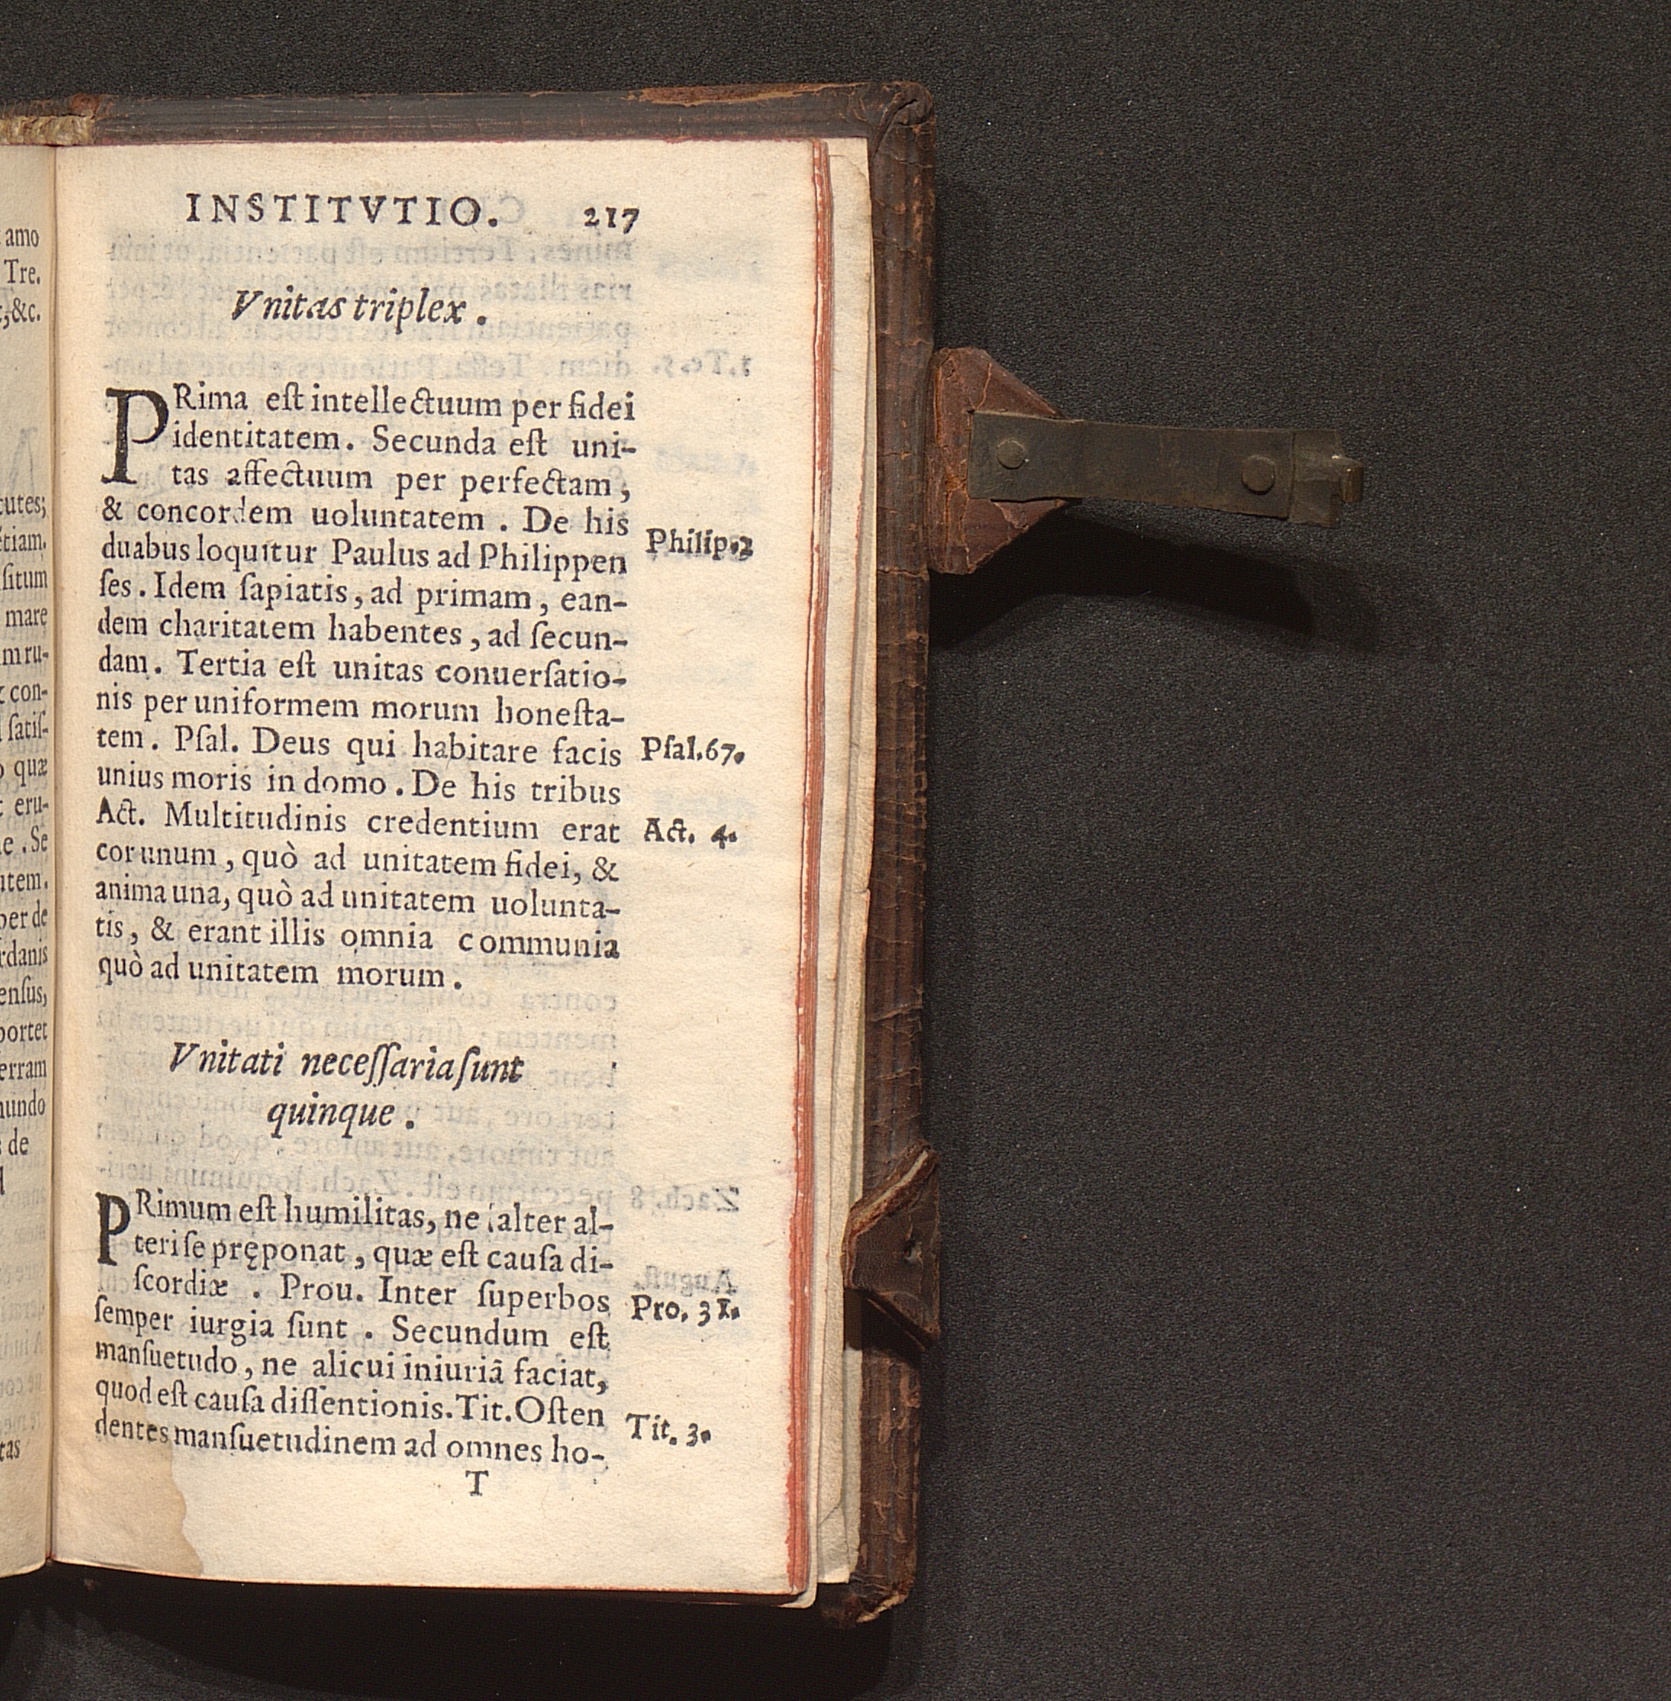 INSTITVTIO. 217
Vnitas triplex.
PRima eſt intellectuum per fidei
identitatem. Secunda eſt uni-
tas affectuum per perfectam,
& concordem uoluntatem. De his
duabus loquitur Paulus ad Philippen
Philip.2
ſes. Idem ſapiatis, ad primam, ean-
dem charitatem habentes, ad ſecun-
dam. Tertia eſt unitas conuerſatio-
nis per uniformem morum honeſta-
tem. Pſal. Deus qui habitare facis
Pſal.67.
unius moris in domo. De his tribus
Act. Multitudinis credentium erat
Act. 4.
cor unum, quò ad unitatem fidei, &
anima una, quò ad unitatem uolunta-
tis, & erant illis omnia communia
quò ad unitatem morum.
Vnitati neceſſaria ſunt
quinque.
PRimum eſt humilitas, ne alter al-
teri ſe pręponat, quæ eſt cauſa di-
ſcordiæ. Prou. Inter ſuperbos
Pro. 31.
ſemper iurgia ſunt. Secundum eſt
manſuetudo, ne alicui iniuriã faciat,
quod eſt cauſa diſſentionis. Tit. Oſten
Tit. 3.
dentes manſuetudinem ad omnes ho-
T
amo
Tre.
&c.
cutes;
ctiam.
ſitum
mare
m ru-
con-
ſatiſ-
quæ
eru-
. Se
utem.
per de
rdanis
enſus,
portet
erram
mundo
de
tas